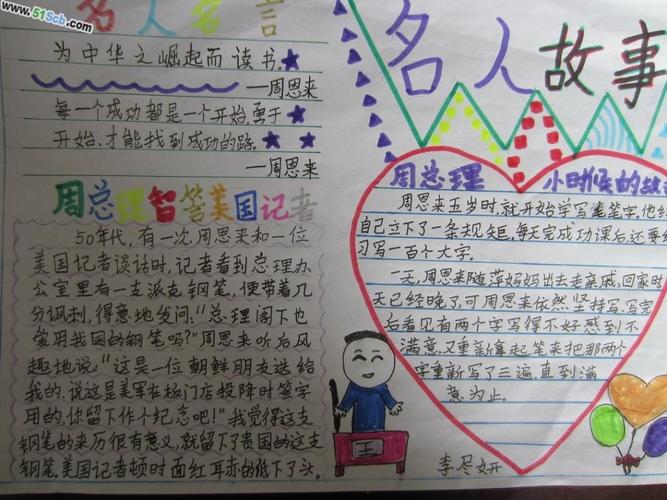 www.51Scb.com
名人名言
为中华之崛起而读书。
—周恩来
每一个成功都是一个开始,勇于
开始,才能找到成功的路。
—周恩来
周总理智答美国记者
50年代,有一次,周恩来和一位
美国记者谈话时,记者看到总理办
公室里有一支派克钢笔,便带着几
分讽刺,得意地发问:“总理阁下也
常用我国的钢笔吗?”周恩来听后风
趣地说:“这是一位朝鲜朋友送给
我的,说这是美军在板门店投降时签字
用的,你留下作个纪念吧!”我觉得这支
钢笔的来历很有意义,就留下了贵国的这支
钢笔,美国记者顿时面红耳赤的低下了头。
名人故事
周总理 小时候的故
周恩来五岁时,就开始学写毛笔字,他给
自己立下了一条规矩,每天完成功课后还要练
习写一百个大字。
一天,周恩来随萍妈妈出去走亲戚,回家时
天已经晚了,可周恩来依然坚持写,写完
后看见有两个字写得不好感到不
满意,又重新拿起笔来把那两个
字重新写了三遍,直到满
意为止。
王
李尽妍